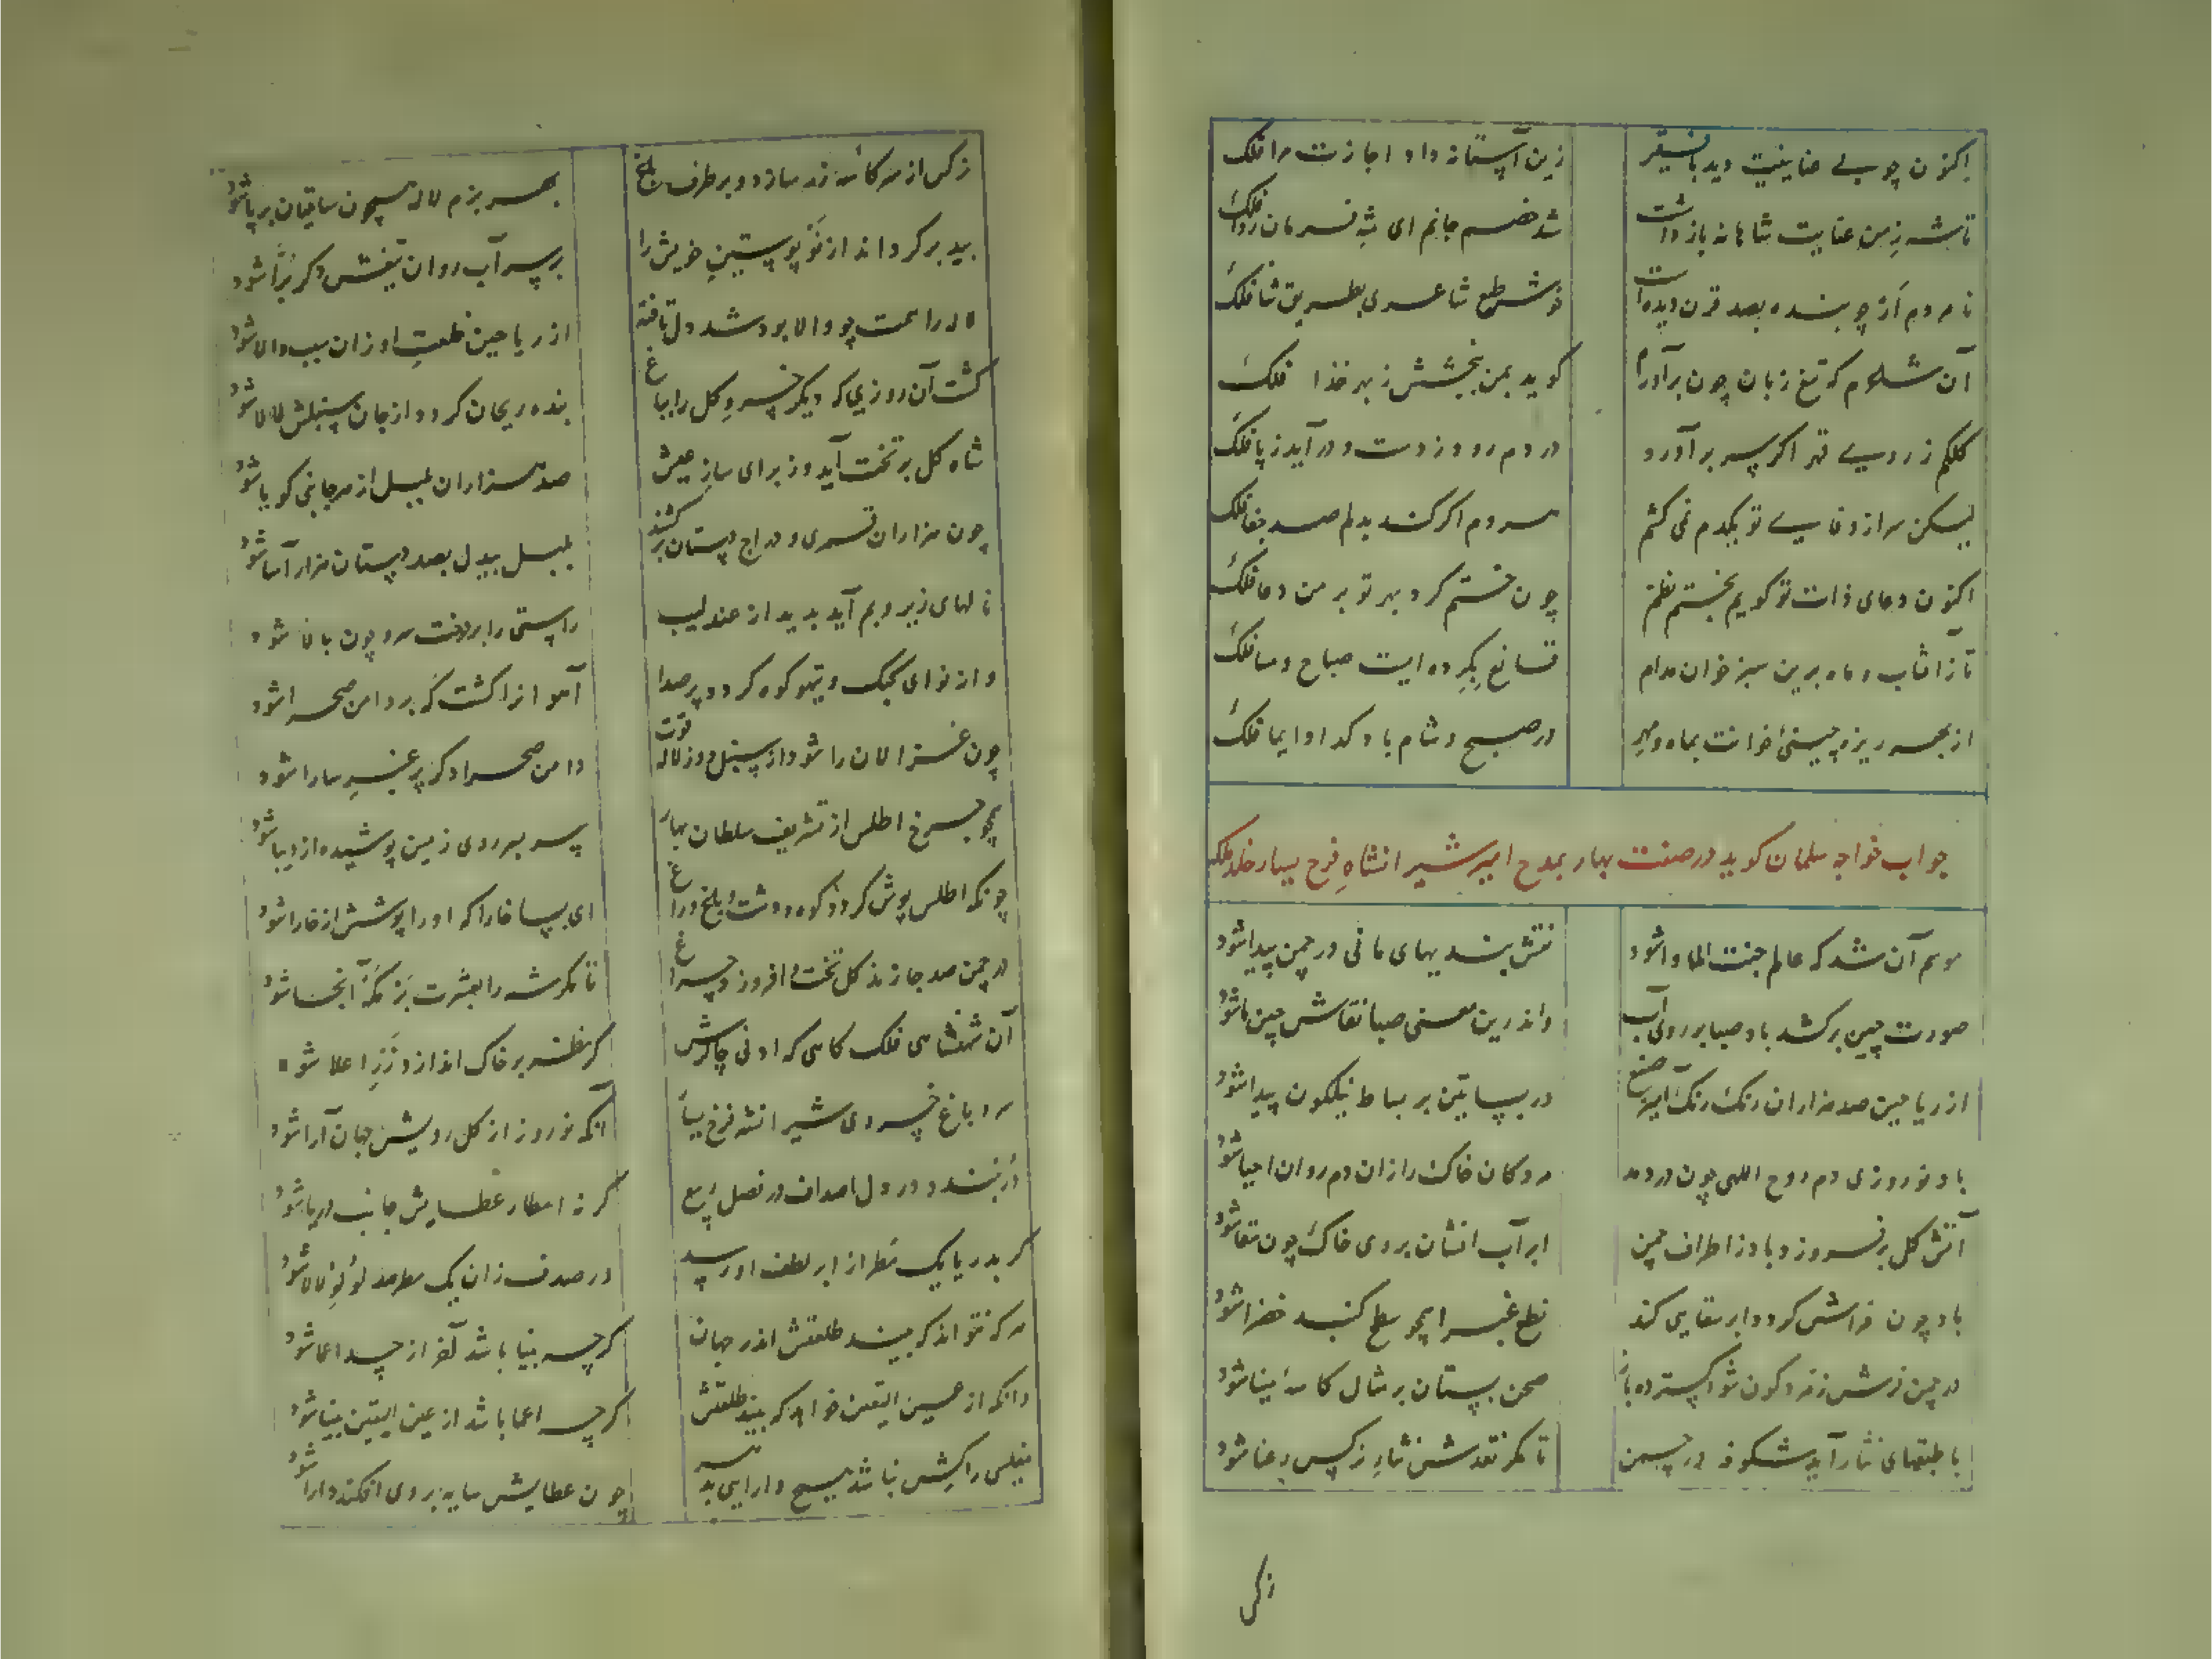 اکنون چو بی عنایتیت دید با فقیر زین آستانه داد اجازت مرا فلک
تا شه ز من عنایت شاهانه باز داشت شد خصم جانم ای شه فرمان روا فلک
نامردم ار چو بنده بصد قرن دیده است خوش طبع شاعری بطریق ثنا فلک
آن شاعرم که تیغ زبان چون برآورم کوید بمن ببخش ز بهر خدا فلک
کلکم ز روی قهر اکر سر برآورد در دم رود ز دست و درآید ز پا فلک
لیکن سر از وفای تو یکدم نمی کشم هر دم اکر کند بدلم صد جفا فلک
اکنون دعای ذات تو کویم بختم نظم چون ختم کرد بهر تو بر من دعا فلک
تا ز آفتاب و ماه برین سبز خوان مدام قانع بکرده ایست صباح و مسا فلک
از بهر ریزه چینی خوانت بماه و مهر در صبح و شام باد کدا دایما فلک
جواب خواجه سلمان کوید در صفت بهار بمدح امیر شیر انشاه فرخ یسار خلد ملکه
موسم آن شد که عالم جنت الماوا شود نقش بندیهای مانی در چمن پیدا شود
صورت چین برکشد باد صبا بر روی آب واندرین معنی صبا نقاش چین ما شود
از ریاحین صد هزاران رنک رنک آمیز صنع در بساتین بر بساط نیلکون پیدا شود
باد نوروزی دم روح اللهی چون در دمد مردکان خاک را زان دم روان احیا شود
آتش کل برفروزد باد از اطراف چمن ابر آب افشان بروی خاک چون سقا شود
باد چون فراش کردد ابر سقایی کند نطع غبرا همچو سطح کنبد خضرا شود
در چمن فرش زمردکون شود کسترده باز صحن بستان بر مثال کاسه مینا شود
با طبقهای نثار آید شکوفه در چمن تا مکر نقدش نثار نرکس رعنا شود
نرکس
نرکس از سر کاسه زر سازد و بر طرف باغ بهر بزم لاله همچون ساقیان بر پا شود
بید برکرداند از نو پوستین خویش را بر سر آب روان تیغش دکر برا شود
لاله را همت چو والا بود شد دل تافته از ریاحین خلعت او زان سبب والا شود
کشت آن روزی که دیکر خسرو کل را بباغ بنده ریحان کردد از جان سنبلش لالا شود
شاه کل بر تخت آید وز برای ساز عیش صد هزاران بلبل از هر جانبی کویا شود
چون هزاران قمری و دراج دستان برکشند بلبل بیدل بصد دستان هزار آسا شود
نالهای زیر و بم آید پدید از عندلیب راستی را بر درخت سرو چون بالا شود
و از نوای کبک و تیهو کوه کردد پر صدا آهو از کشت کمر بر دامن صحرا شود
چون غزالان را شود از سنبل و ز لاله قوت دامن صحرا دکر پر عنبر سارا شود
همچو چرخ اطلس از تشریف سلطان بهار سر بسر روی زمین پوشیده از دیبا شود
چونکه اطلس پوش کردد کوه و دشت و باغ و راغ ای بسا خارا که او را پوشش از خارا شود
در چمن صد جا زند کل تخت و افروزد چراغ تا مکر شه را بعشرت بزمکه آنجا شود
آن شهنشاهی فلک کاهی که ادنی چاکرش کر نظر بر خاک اندازد ز زر اعلا شود
سرو باغ خسروی شیر انشه فرخ یسار آنکه نوروز از کل رویش جهان آرا شود
در نبندد در دل اصداف در فصل ربیع کر نه امطار عطایش جانب دریا شود
کر بدریا یک مطر از ابر لطف او رسد در صدف زان یک مطر صد لؤلؤ لالا شود
هر که نتواند که بیند طلعتش اندر جهان کرچه بینا باشد آخر از حسد اعما شود
وانکه از عین الیقین خواهد که بیند طلعتش کرچه اعما باشد از عین الیقین بینا شود
مفلسی را کش نباشد هیچ دارایی بدهر چون عطایش سایه بر وی افکند دارا شود